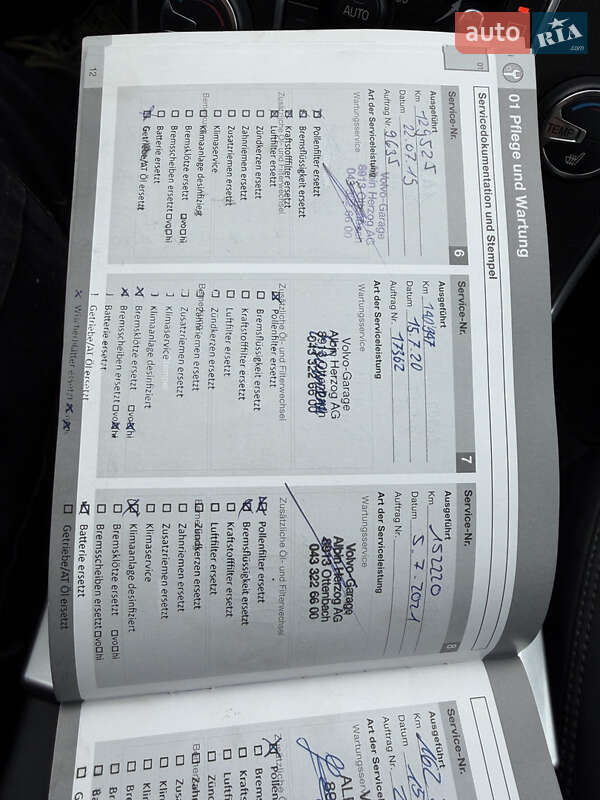 auto RIA .com
AUTO
TEMP
01 Pflege und Wartung
01
Servicedokumentation und Stempel
Service-Nr. 6
Ausgeführt
Km 129525
Datum 22.07.15
Auftrag Nr. 9635
Art der Serviceleistung
Wartungsservice
Volvo-Garage
Albin Herzog AG
8913 Ottenbach
043 322 66 00
Zusätzliche Öl- und Filterwechsel
Pollenfilter ersetzt
Bremsflüssigkeit ersetzt
Kraftstofffilter ersetzt
Luftfilter ersetzt
Zündkerzen ersetzt
Zahnriemen ersetzt
Zusatzriemen ersetzt
Klimaservice
Klimaanlage desinfiziert
Bremsklötze ersetzt vo hi
Bremsscheiben ersetzt vo hi
Batterie ersetzt
Getriebe/AT Öl ersetzt
12
Service-Nr. 7
Ausgeführt
Km 140797
Datum 15.7.20
Auftrag Nr. 17302
Art der Serviceleistung
Wartungsservice
Volvo-Garage
Albin Herzog AG
8913 Ottenbach
043 322 66 00
Zusätzliche Öl- und Filterwechsel
Pollenfilter ersetzt
Bremsflüssigkeit ersetzt
Kraftstofffilter ersetzt
Luftfilter ersetzt
Zündkerzen ersetzt
Zahnriemen ersetzt
Zusatzriemen ersetzt
Klimaservice
Klimaanlage desinfiziert
Bremsklötze ersetzt vo hi
Bremsscheiben ersetzt vo hi
Batterie ersetzt
Getriebe/AT Öl ersetzt
Service-Nr. 8
Ausgeführt
Km 152220
Datum 5.7.2021
Auftrag Nr.
Art der Serviceleistung
Wartungsservice
Volvo-Garage
Albin Herzog AG
8913 Ottenbach
043 322 66 00
Zusätzliche Öl- und Filterwechsel
Pollenfilter ersetzt
Bremsflüssigkeit ersetzt
Kraftstofffilter ersetzt
Luftfilter ersetzt
Zündkerzen ersetzt
Zahnriemen ersetzt
Zusatzriemen ersetzt
Klimaservice
Klimaanlage desinfiziert
Bremsklötze ersetzt vo hi
Bremsscheiben ersetzt vo hi
Batterie ersetzt
Getriebe/AT Öl ersetzt
Service-Nr.
Ausgeführt
Km 162
Datum 15
Auftrag Nr.
Art der Servicel
Wartungsservice